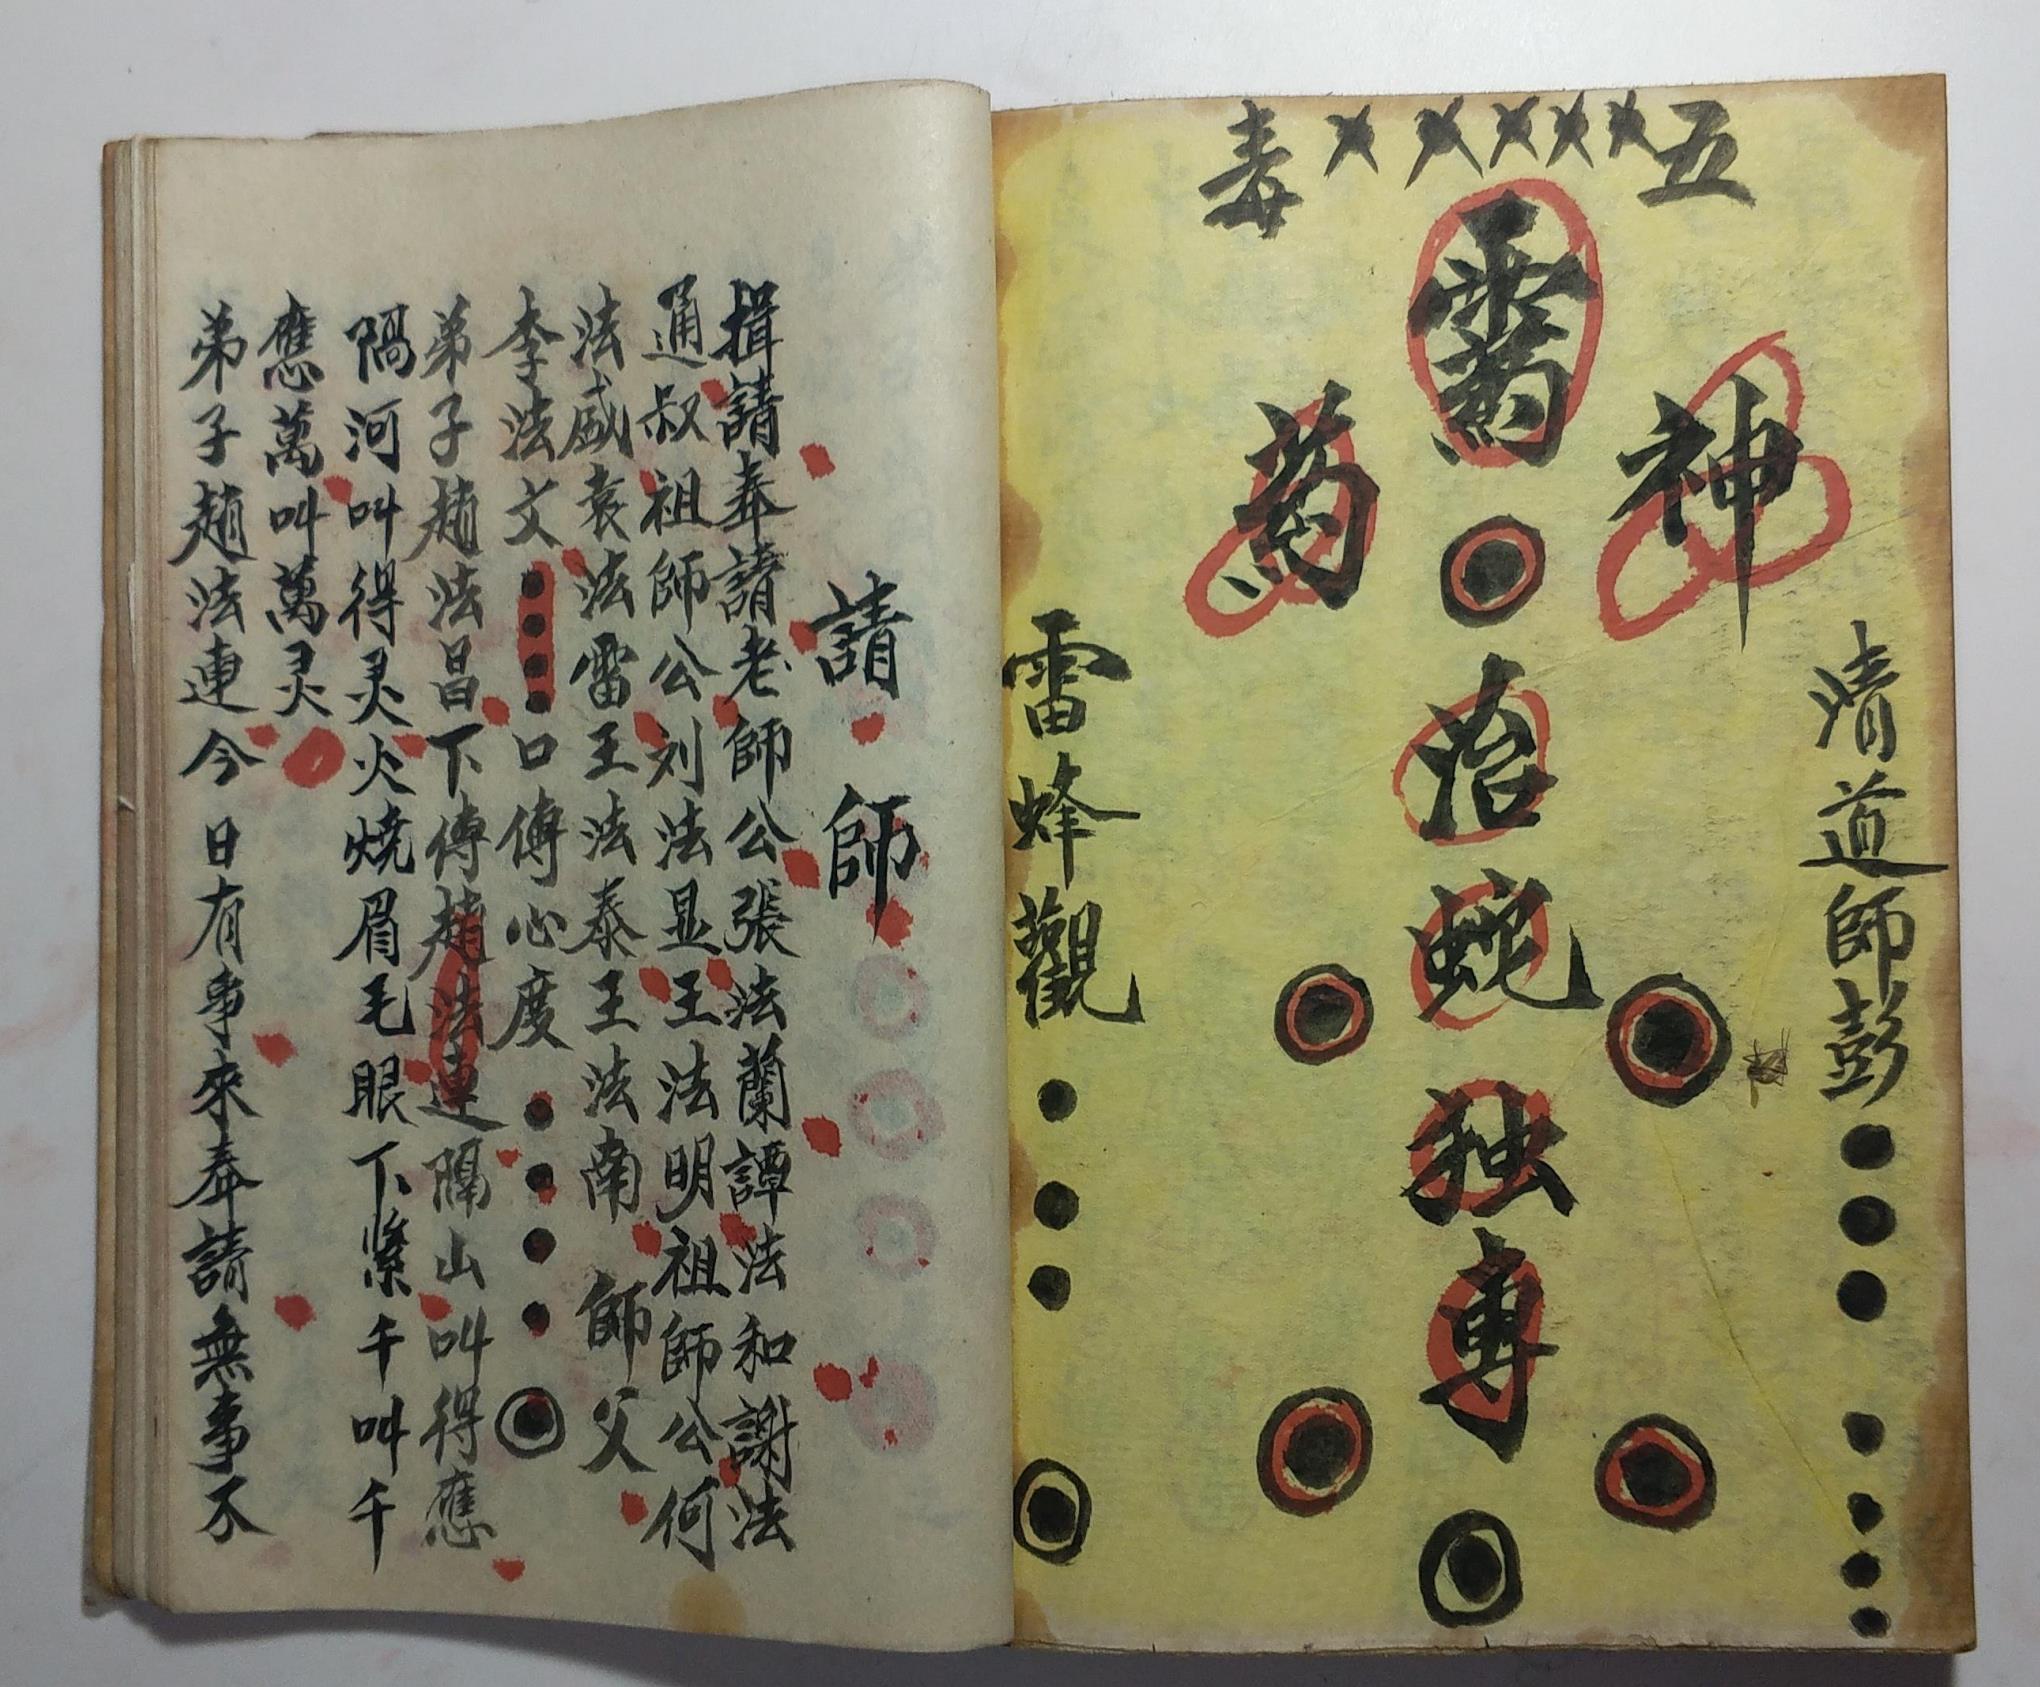 五毒
神药
治蛇独專
清道師彭
雷蜂觀
請師
揖請奉請老師公張法蘭譚法和謝法
通叔祖師公刘法显王法明祖師公何
法盛袁法雷王法泰王法南 師父
李法文 口傳心度
弟子趙法昌下傳趙法連隔山叫得應
隔河叫得灵火燒眉毛眼下緊千叫千
應萬叫萬灵
弟子趙法連今日有事來奉請無事不